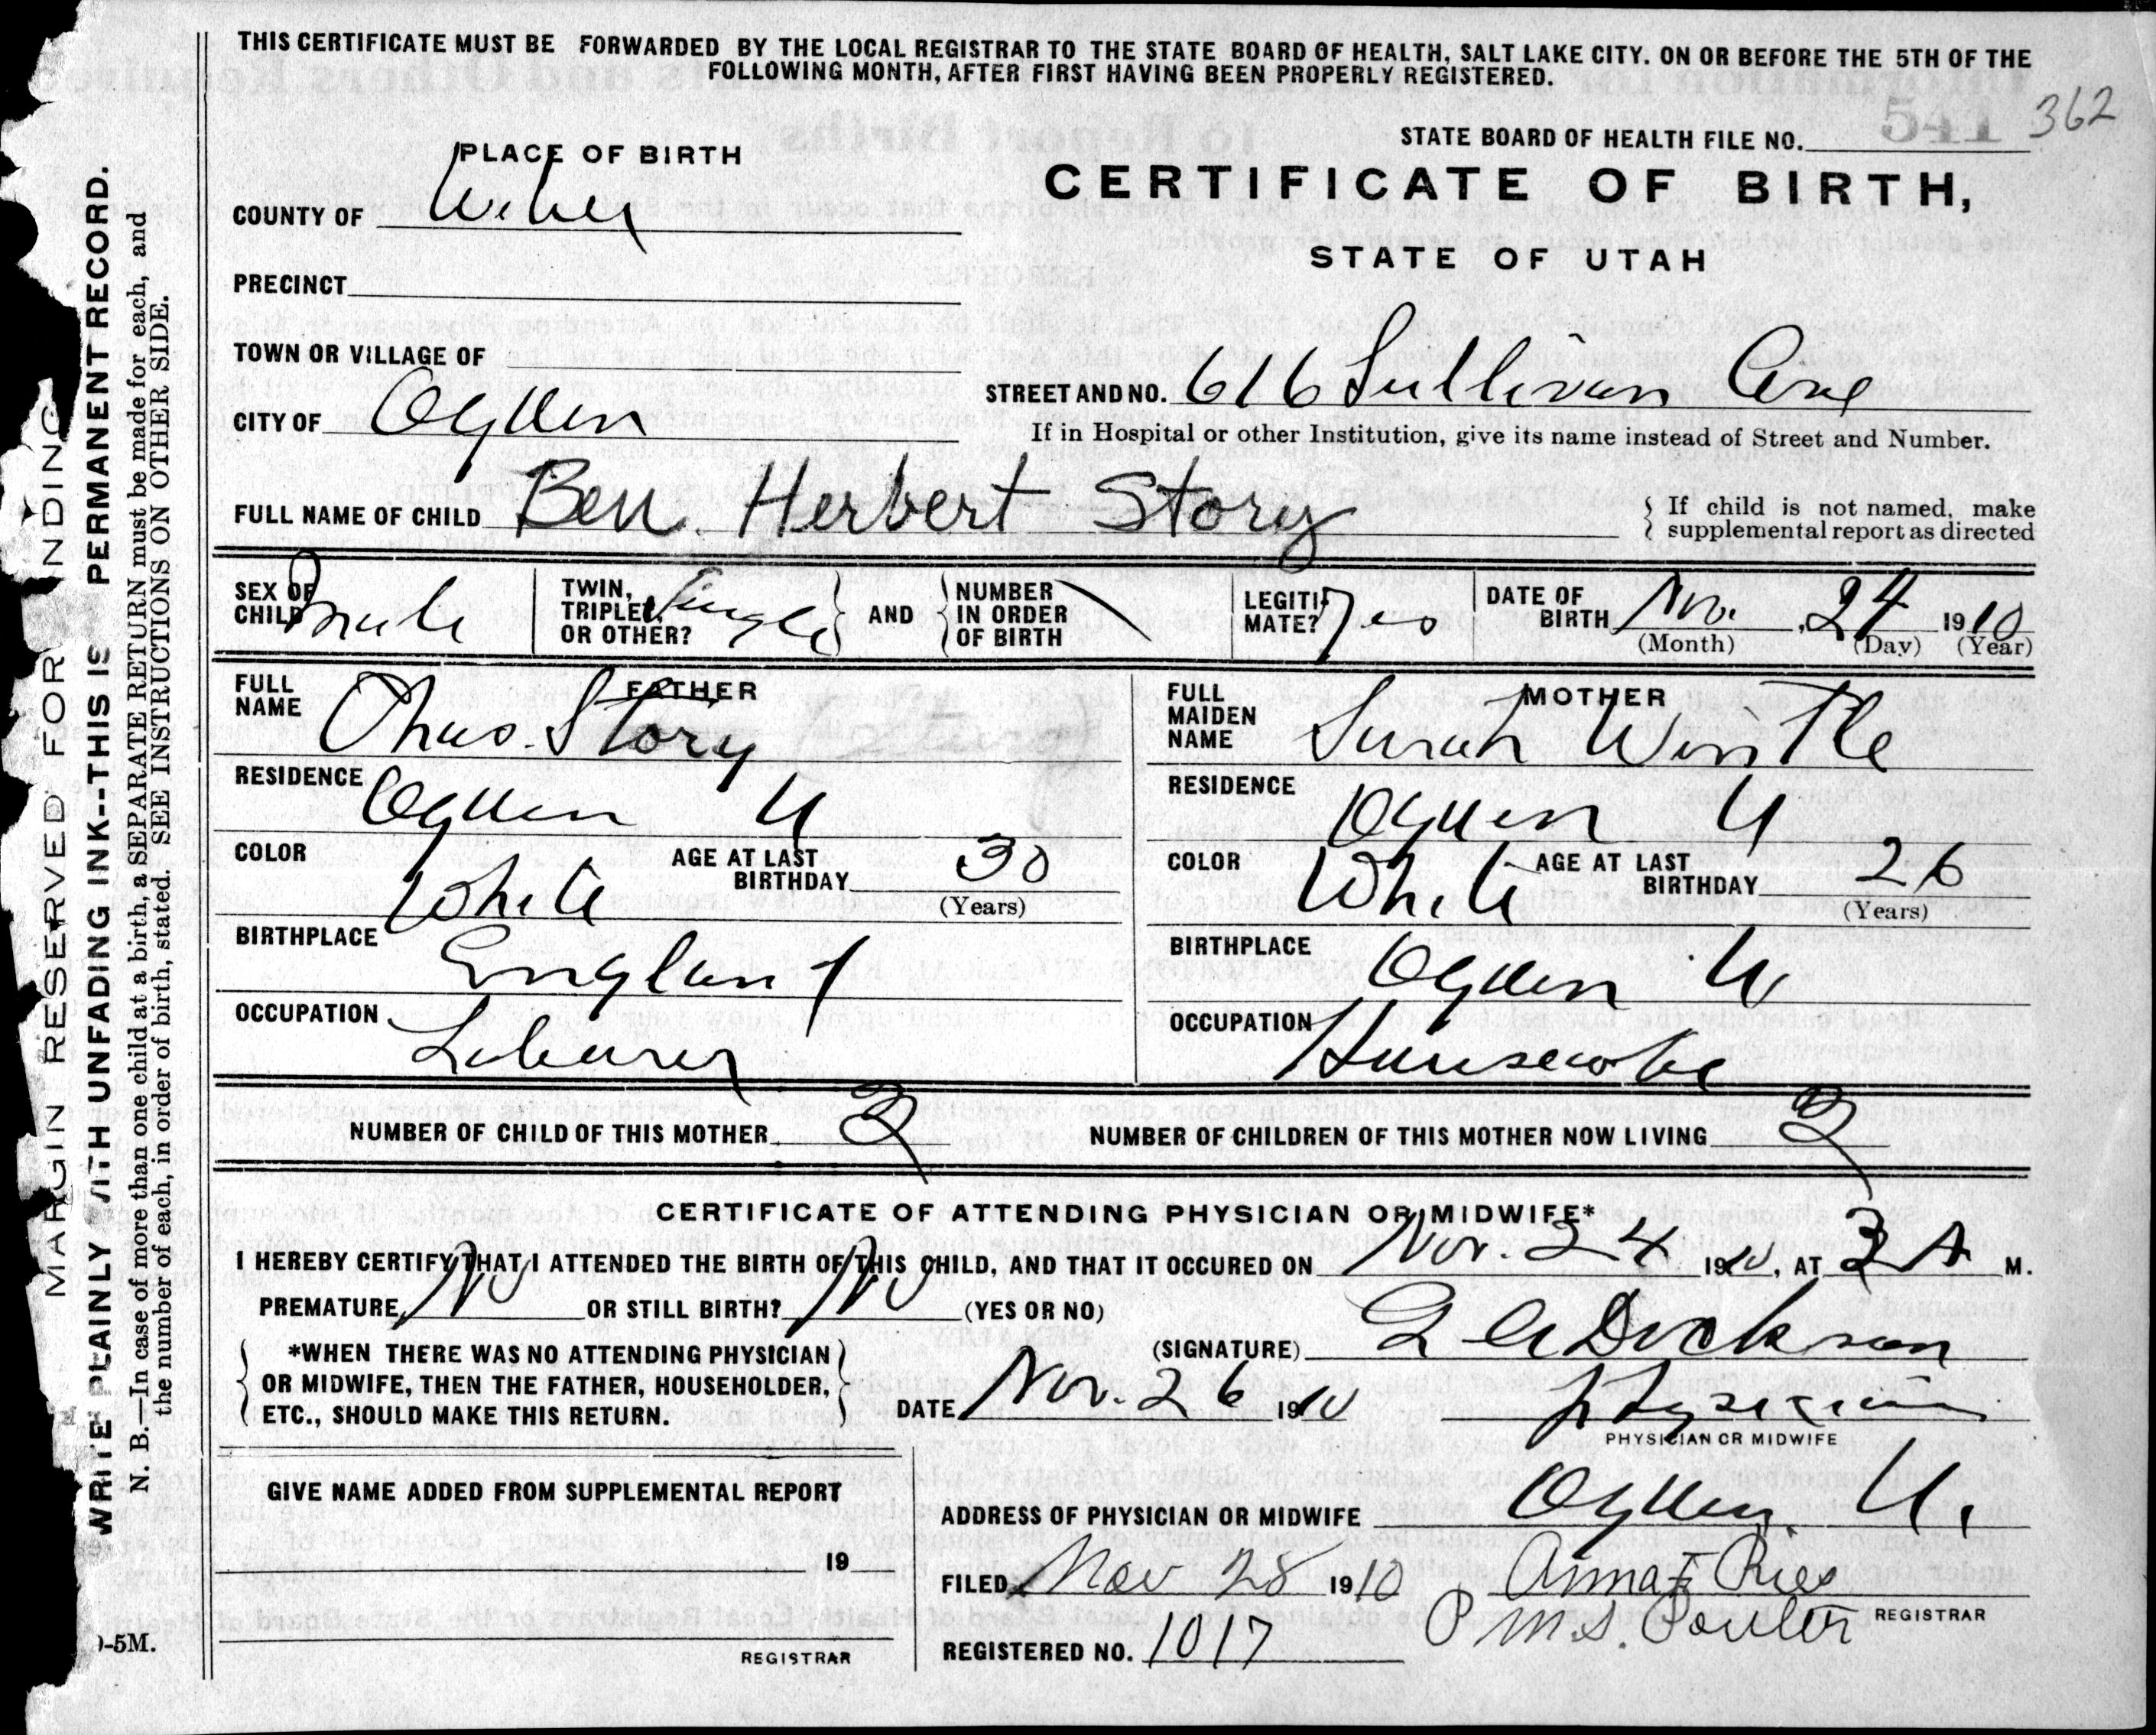 THIS CERTIFICATE MUST BE FORWARDED BY THE LOCAL REGISTRAR TO THE STATE BOARD OF HEALTH, SALT LAKE CITY. ON OR BEFORE THE 5TH OF THE
FOLLOWING MONTH, AFTER FIRST HAVING BEEN PROPERLY REGISTERED.
362
STATE BOARD OF HEALTH FILE NO. 541
PLACE OF BIRTH
CERTIFICATE OF BIRTH,
COUNTY OF Weber
STATE OF UTAH
PRECINCT
TOWN OR VILLAGE OF
STREET AND NO. 616 Sullivan Ave
CITY OF Ogden
If in Hospital or other Institution, give its name instead of Street and Number.
FULL NAME OF CHILD Ben Herbert Story
If child is not named, make
supplemental report as directed
SEX OF CHILD male
TWIN, TRIPLET, OR OTHER? Single
AND
NUMBER IN ORDER OF BIRTH
LEGITIMATE? Yes
DATE OF BIRTH Nov. , 24 1910
(Month) (Day) (Year)
FATHER
FULL NAME Chas. Story
RESIDENCE Ogden U
COLOR White
AGE AT LAST BIRTHDAY 30
(Years)
BIRTHPLACE England
OCCUPATION Laborer
MOTHER
FULL MAIDEN NAME Sarah Wintle
RESIDENCE Ogden U
COLOR White
AGE AT LAST BIRTHDAY 26
(Years)
BIRTHPLACE Ogden U
OCCUPATION Housewife
NUMBER OF CHILD OF THIS MOTHER 2
NUMBER OF CHILDREN OF THIS MOTHER NOW LIVING 2
CERTIFICATE OF ATTENDING PHYSICIAN OR MIDWIFE*
I HEREBY CERTIFY THAT I ATTENDED THE BIRTH OF THIS CHILD, AND THAT IT OCCURED ON Nov. 24 1910, AT 3 A M.
PREMATURE, No OR STILL BIRTH? No (YES OR NO)
*WHEN THERE WAS NO ATTENDING PHYSICIAN
OR MIDWIFE, THEN THE FATHER, HOUSEHOLDER,
ETC., SHOULD MAKE THIS RETURN.
(SIGNATURE) Dickson
DATE Nov. 26 1910
Physician
PHYSICIAN OR MIDWIFE
GIVE NAME ADDED FROM SUPPLEMENTAL REPORT
19
REGISTRAR
ADDRESS OF PHYSICIAN OR MIDWIFE Ogden U.
FILED Nov 28 1910 Anna F Ries
P M.S. Poulter REGISTRAR
REGISTERED NO. 1017
MARGIN RESERVED FOR INDING
WRITE PLAINLY WITH UNFADING INK--THIS IS PERMANENT RECORD.
N. B.—In case of more than one child at a birth, a SEPARATE RETURN must be made for each, and
the number of each, in order of birth, stated. SEE INSTRUCTIONS ON OTHER SIDE.
-5M.